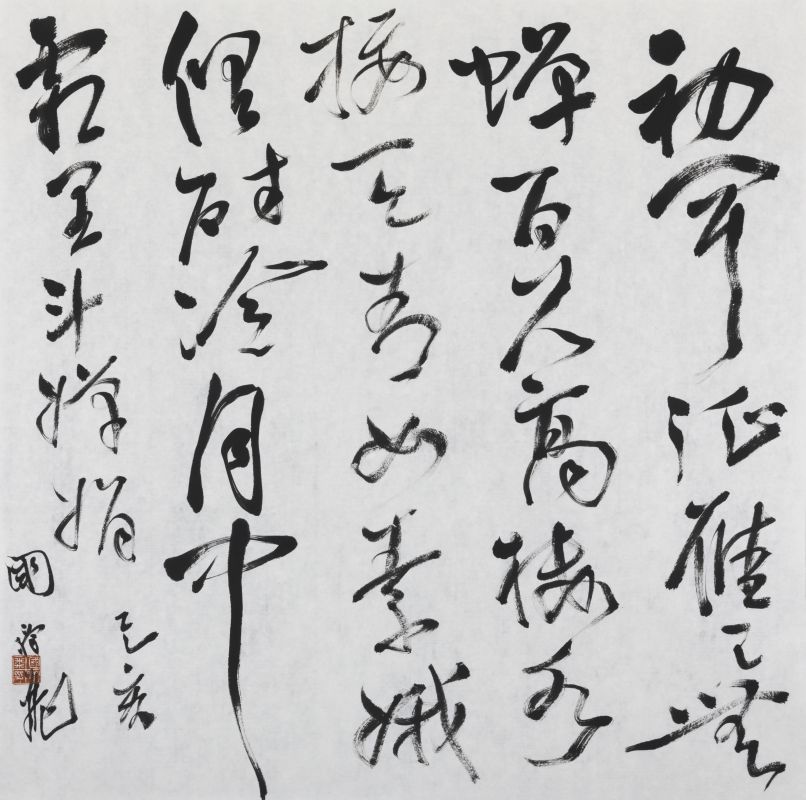 初聞征雁已無
蟬百尺高樓水
接天青女素娥
俱耐冷月中
霜里斗嬋娟
己亥
國